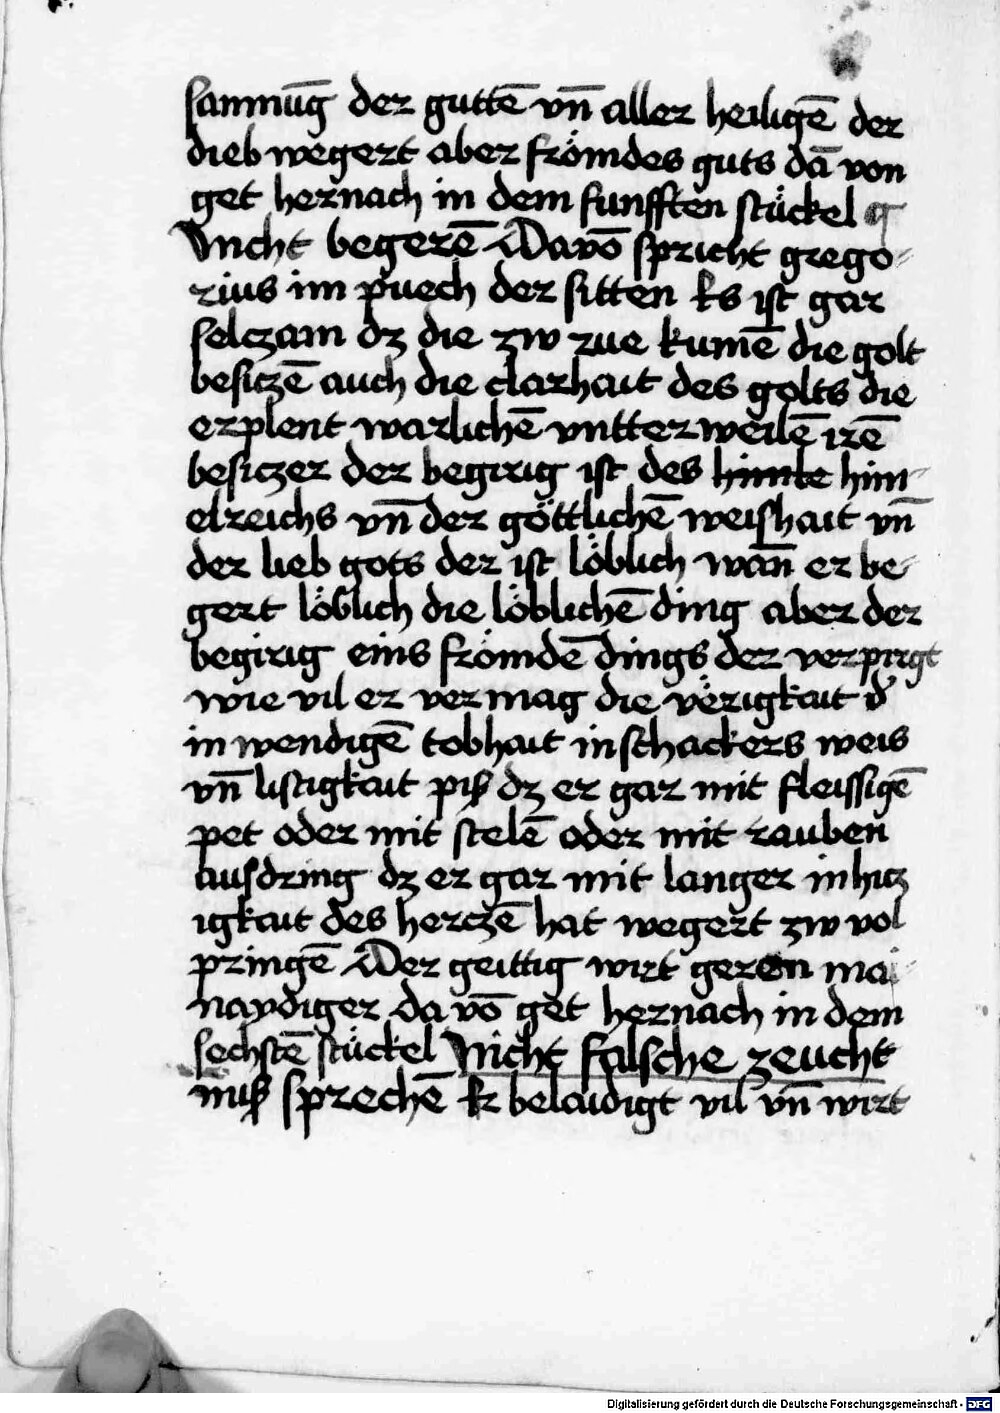 samnūg der guttē vn̄ aller heiligē der
dieb wegert aber frömdes guts dā von
get hernach in dem funfften stückel
Nicht begerē Davō spricht grego-
rius im puech der sitten Es ist gar
selczam dz die zw rue kumē die golt
besiczē auch die clarhait des golts die
erplent warlichē vntterweilē irē
besiczer der begirig ist des himle him-
elreichs vn̄ der göttlichē weishait vn̄
der lieb gots der ist löblich wan̄ er be-
gert löblich die löblichē ding aber der
begirig eins frömdē dings der verpirgt
wie vil er vermag die vërigkait d̕
inwendigē tobhait in schackers weis
vn̄ listigkait piß dz er gar mit fleissigē
pet oder mit stelē oder mit rauben
ausdring dz er gar mit langer inhicz
igkait des herczē hat wegert zw vol
pringē Der geittig wirt geren mai-
naydiger da vō get hernach in dem
sechstē stückel Nicht falsche zeucht
nuß sprechē Er belaidigt vil vn̄ wirt
Digitalisierung gefördert durch die Deutsche Forschungsgemeinschaft - DFG